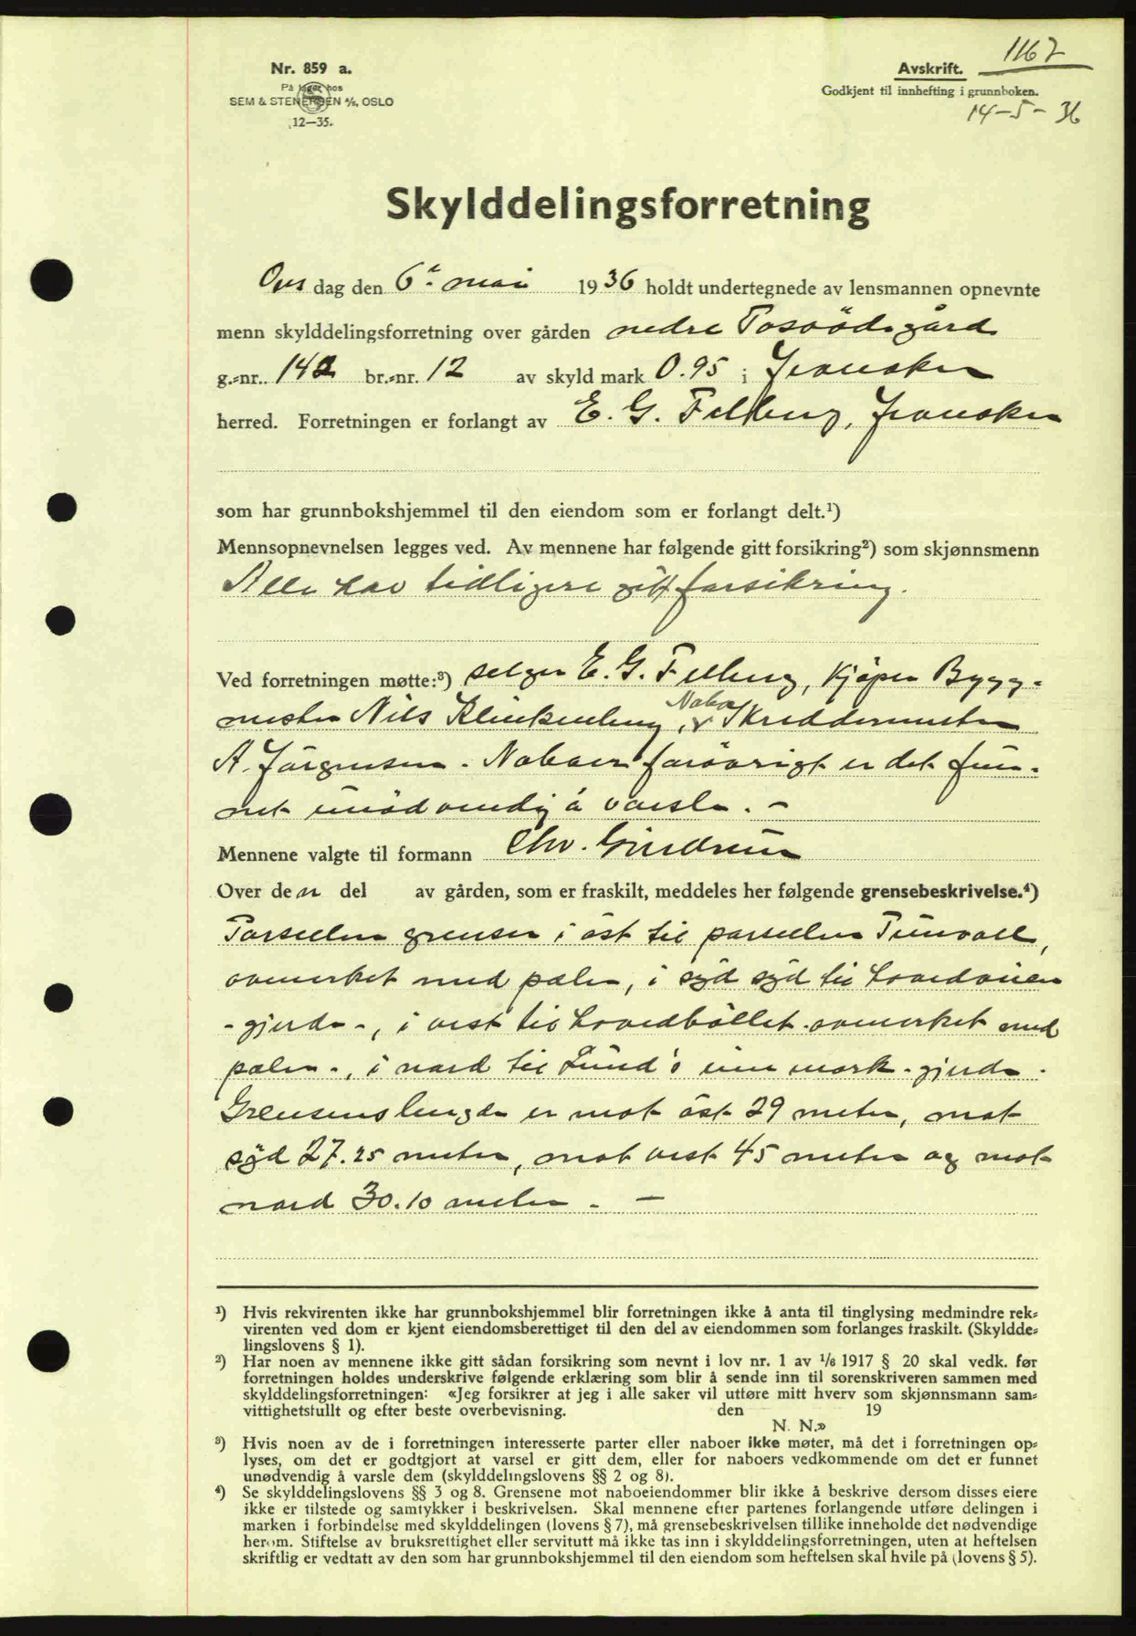 1167
Nr. 859 a.
Avskrift.
På lager hos
Godkjent til innhefting i grunnboken.
SEM & STENERSEN A/S, OSLO
12—35.
14-5-36
Skylddelingsforretning
Ons dag den 6' mai 1936 holdt undertegnede av lensmannen opnevnte
menn skylddelingsforretning over gården nedre
g.-nr. 142 br.-nr. 12 av skyld mark 0.95 i
herred. Forretningen er forlangt av E. G. Felberg,
som har grunnbokshjemmel til den eiendom som er forlangt delt.¹)
Mennsopnevnelsen legges ved. Av mennene har følgende gitt forsikring²) som skjønnsmenn
Alle har tidligere gitt forsikring.
Ved forretningen møtte:³) selger E. G. Felberg, kjöper Bygg-
mester Nils Klinkenberg, Nabo Skreddermester
A. Jörgensen. Naboer forövrigt er det fun-
net unödvendig å varsle. -
Mennene valgte til formann Chr. Gindrum
Over den del av gården, som er fraskilt, meddeles her følgende grensebeskrivelse.⁴)
Parsellen grenser i öst til parsellen Tunvall,
avmerket med pæler, i syd til hovedveien
- gjerde -, i vest til hovedböllet avmerket med
pæler -, i nord til Lund's inn mark - gjerde -
Grensens lengde er mot öst 29 meter, mot
syd 27.25 meter, mot vest 45 meter og mot
nord 30.10 meter. -
¹) Hvis rekvirenten ikke har grunnbokshjemmel blir forretningen ikke å anta til tinglysing medmindre rek-
virenten ved dom er kjent eiendomsberettiget til den del av eiendommen som forlanges fraskilt. (Skyldde-
lingslovens § 1).
²) Har noen av mennene ikke gitt sådan forsikring som nevnt i lov nr. 1 av 1/6 1917 § 20 skal vedk. før
forretningen holdes underskrive følgende erklæring som blir å sende inn til sorenskriveren sammen med
skylddelingsforretningen: «Jeg forsikrer at jeg i alle saker vil utføre mitt hverv som skjønnsmann sam-
vittighetsfullt og efter beste overbevisning. den 19
N. N.»
³) Hvis noen av de i forretningen interesserte parter eller naboer ikke møter, må det i forretningen op-
lyses, om det er godtgjort at varsel er gitt dem, eller for naboers vedkommende om det er funnet
unødvendig å varsle dem (skylddelingslovens §§ 2 og 8).
⁴) Se skylddelingslovens §§ 3 og 8. Grensene mot naboeiendommer blir ikke å beskrive dersom disses eiere
ikke er tilstede og samtykker i beskrivelsen. Skal mennene efter partenes forlangende utføre delingen i
marken i forbindelse med skylddelingen (lovens § 7), må grensebeskrivelsen tillike inneholde det nødvendige
herom. Stiftelse av bruksrettighet eller servitutt må ikke tas inn i skylddelingsforretningen, uten at heftelsen
skriftlig er vedtatt av den som har grunnbokshjemmel til den eiendom som heftelsen skal hvile på (lovens § 5).